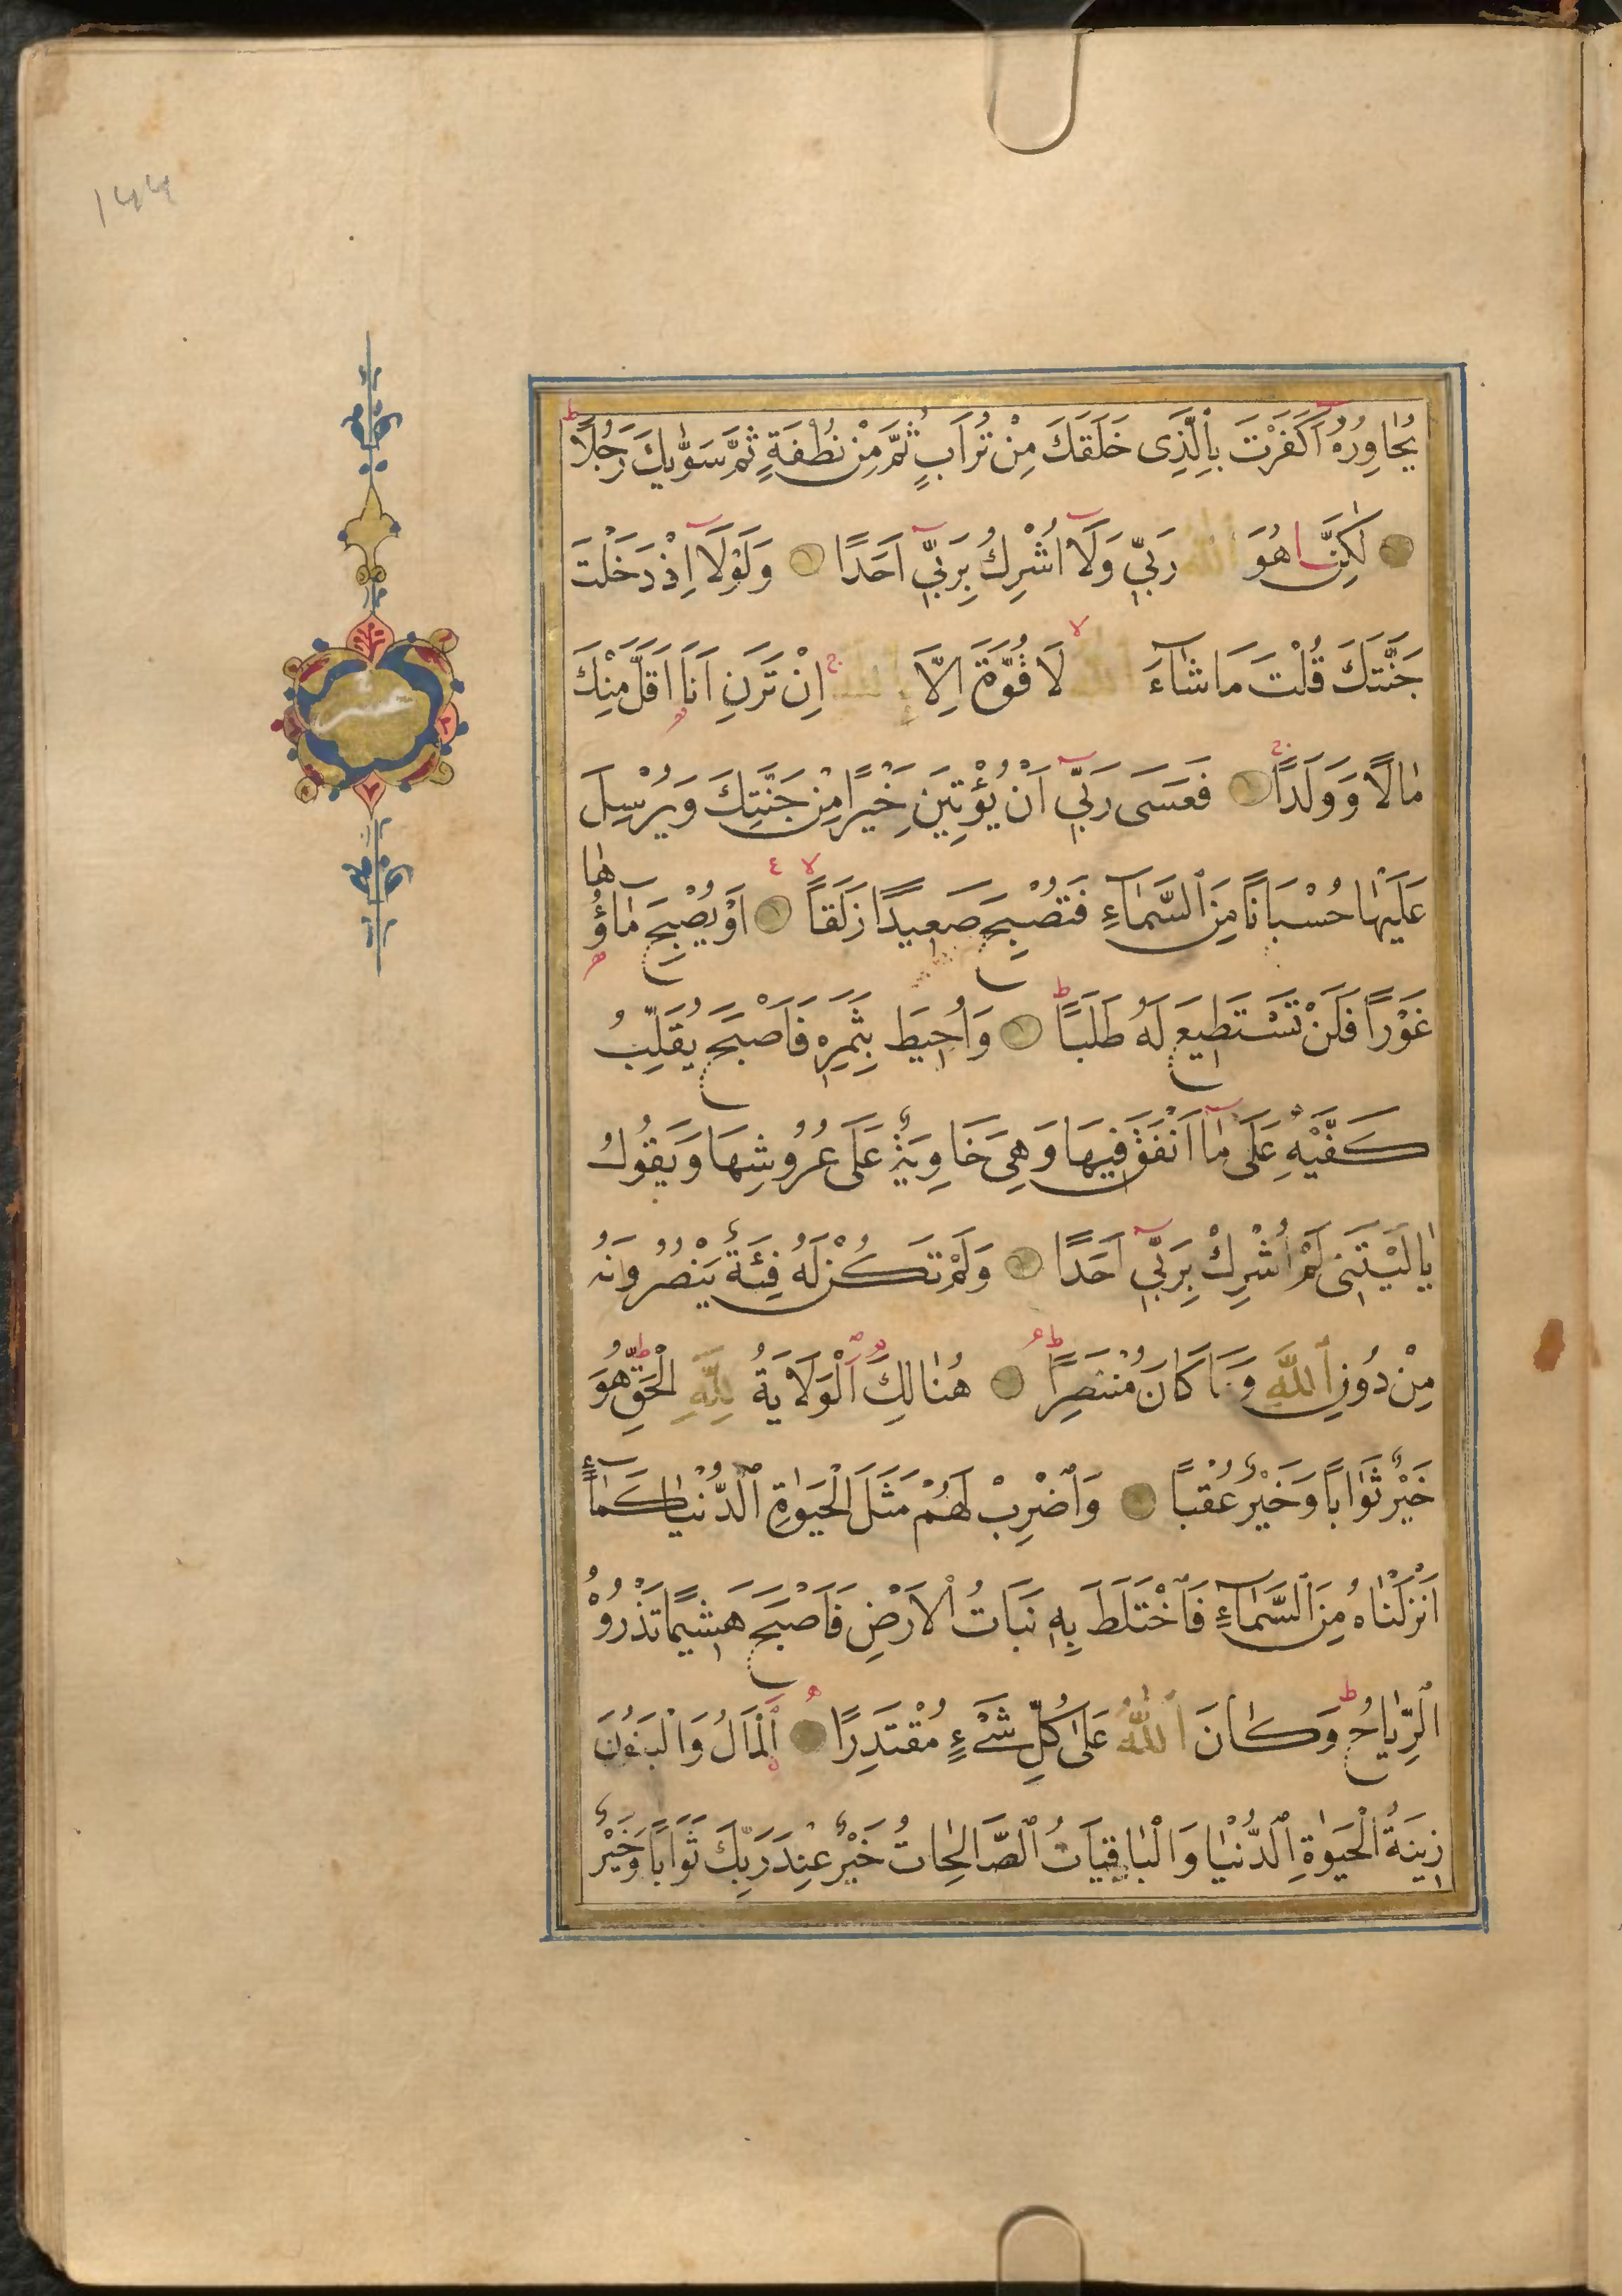 ١٤٤
يُحَاوِرُهُ اَكَفَرْتَ بِالَّذِى خَلَقَكَ مِنْ تُرَابٍ ثُمَّ مِنْ نُطْفَةٍ ثُمَّ سَوّٰيكَ رَجُلًا
لٰكِنَّا هُوَ اللّٰهُ رَبّٖى وَلَآ اُشْرِكُ بِرَبّٖىٓ اَحَدًا وَلَوْلَآ اِذْ دَخَلْتَ
جَنَّتَكَ قُلْتَ مَا شَآءَ اللّٰهُ لَا قُوَّةَ اِلَّا بِاللّٰهِ اِنْ تَرَنِ اَنَا اَقَلَّ مِنْكَ
مَالًا وَوَلَدًا فَعَسَى رَبّٖىٓ اَنْ يُؤْتِيَنِ خَيْرًا مِنْ جَنَّتِكَ وَيُرْسِلَ
عَلَيْهَا حُسْبَانًا مِنَ السَّمَآءِ فَتُصْبِحَ صَعٖيدًا زَلَقًا اَوْ يُصْبِحَ مَآؤُهَا
غَوْرًا فَلَنْ تَسْتَطٖيعَ لَهُ طَلَبًا وَاُحٖيطَ بِثَمَرِهٖ فَاَصْبَحَ يُقَلِّبُ
كَفَّيْهِ عَلَى مَآ اَنْفَقَ فٖيهَا وَهِىَ خَاوِيَةٌ عَلَى عُرُوشِهَا وَيَقُولُ
يَا لَيْتَنٖى لَمْ اُشْرِكْ بِرَبّٖىٓ اَحَدًا وَلَمْ تَكُنْ لَهُ فِئَةٌ يَنْصُرُونَهُ
مِنْ دُونِ اللّٰهِ وَمَا كَانَ مُنْتَصِرًا هُنَالِكَ الْوَلَايَةُ لِلّٰهِ الْحَقِّ هُوَ
خَيْرٌ ثَوَابًا وَخَيْرٌ عُقْبًا وَاضْرِبْ لَهُمْ مَثَلَ الْحَيٰوةِ الدُّنْيَا كَمَآءٍ
اَنْزَلْنَاهُ مِنَ السَّمَآءِ فَاخْتَلَطَ بِهٖ نَبَاتُ الْاَرْضِ فَاَصْبَحَ هَشٖيمًا تَذْرُوهُ
الرِّيَاحُ وَكَانَ اللّٰهُ عَلَى كُلِّ شَىْءٍ مُقْتَدِرًا اَلْمَالُ وَالْبَنُونَ
زٖينَةُ الْحَيٰوةِ الدُّنْيَا وَالْبَاقِيَاتُ الصَّالِحَاتُ خَيْرٌ عِنْدَ رَبِّكَ ثَوَابًا وَخَيْرٌ